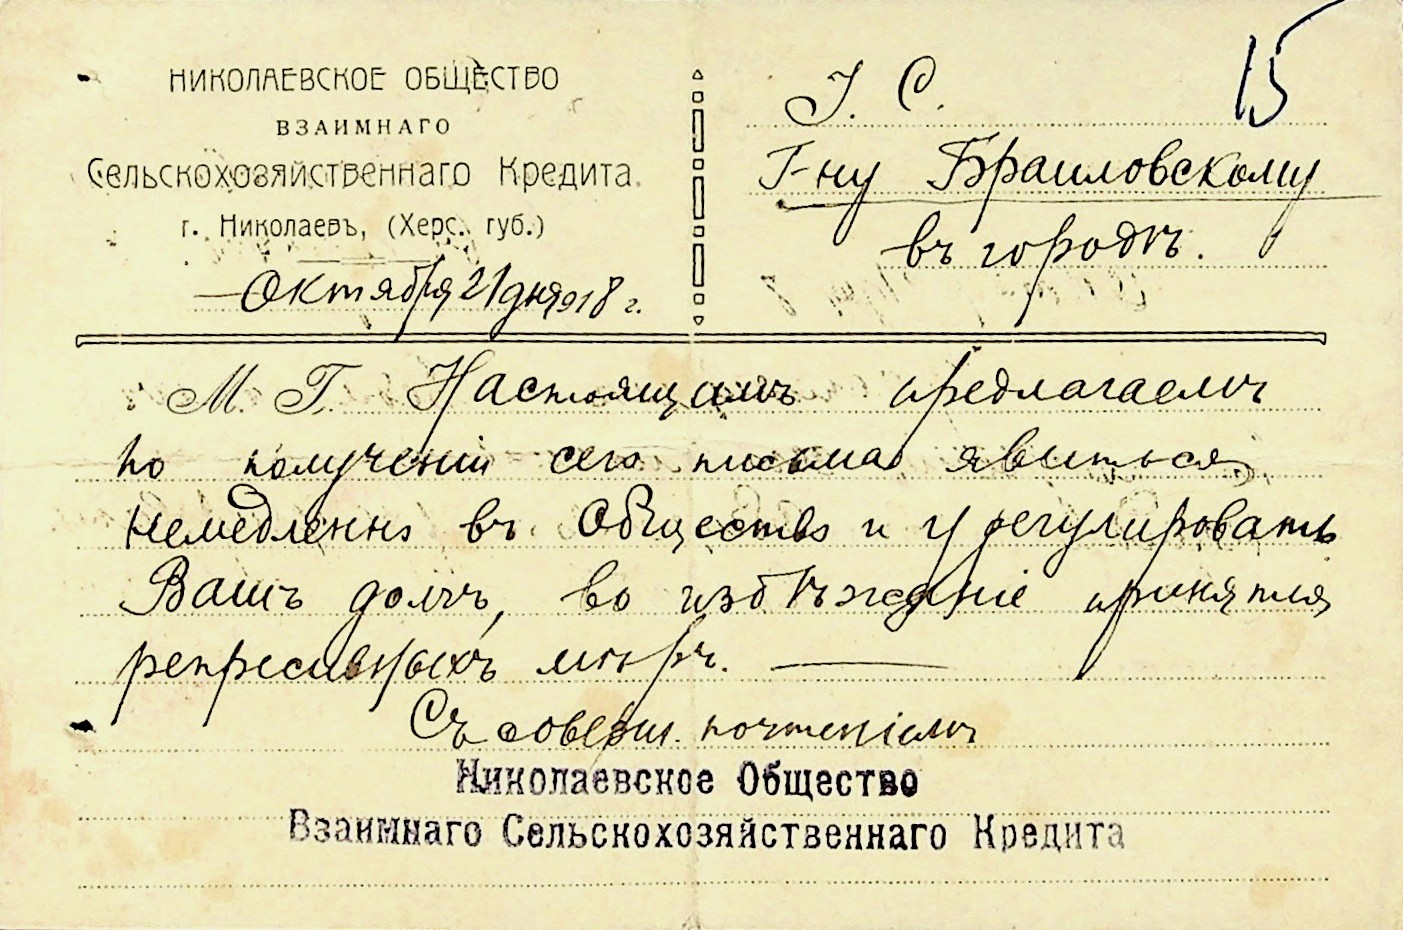 НИКОЛАЕВСКОЕ ОБЩЕСТВО
ВЗАИМНАГО
Сельскохозяйственнаго Кредита
г. Николаевъ, (Херс. губ.)
Октября 21 дня 1918 г.
15
І. С.
Г-ну Браиловскому
въ городѣ.
М. Г. Настоящимъ предлагаемъ
по полученіи сего письма явиться
немедленно въ Общество и урегулировать
Вашъ долгъ, во избѣжаніе принятія
репресивныхъ мѣръ.
Съ соверш. почтеніемъ
Николаевское Общество
Взаимнаго Сельскохозяйственнаго Кредита